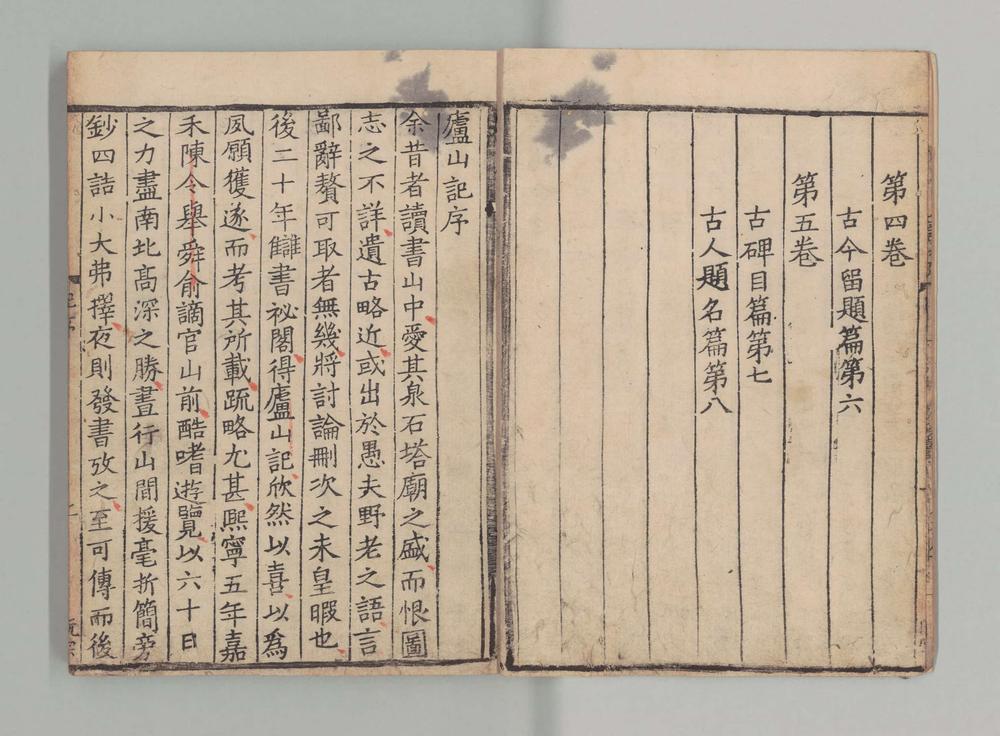 第四卷
古今留題篇第六
第五卷
古碑目篇第七
古人題名篇第八
廬山記序
余昔者讀書山中愛其泉石塔廟之盛而恨圖
志之不詳遺古略近或出於愚夫野老之語言
鄙辭贅可取者無幾將討論刪次之未皇暇也
後二十年讎書祕閣得廬山記欣然以喜以爲
夙願獲遂而考其所載疏略尤甚熙寧五年嘉
禾陳令舉舜俞謫官山前酷嗜遊覽以六十日
之力盡南北高深之勝晝行山間援毫折簡旁
鈔四詰小大弗擇夜則發書攷之至可傳而後